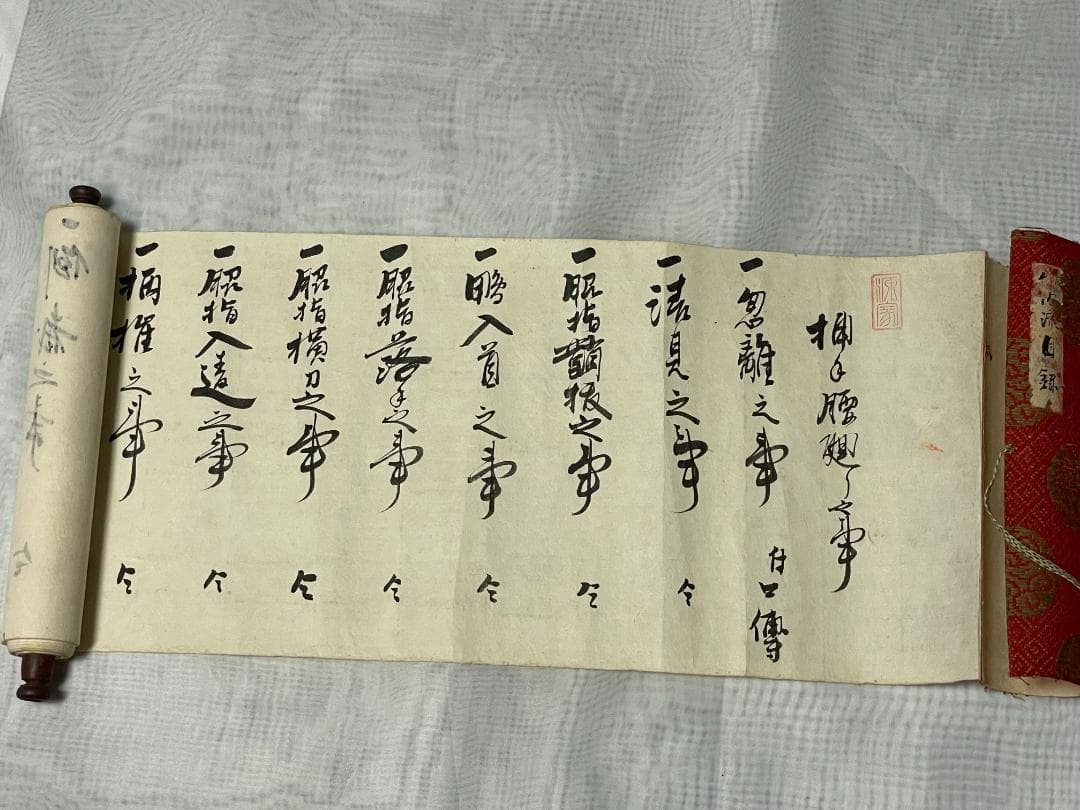 流目録
捕手腰廻り之事
一忽離之事
付口傳
一請見之事 仝
一脇指抜之事 仝
一入首之事 仝
一脇指落手之事 仝
一脇指横刀之事 仝
一脇指入違之事 仝
一柄摧之事 仝
一之事 仝